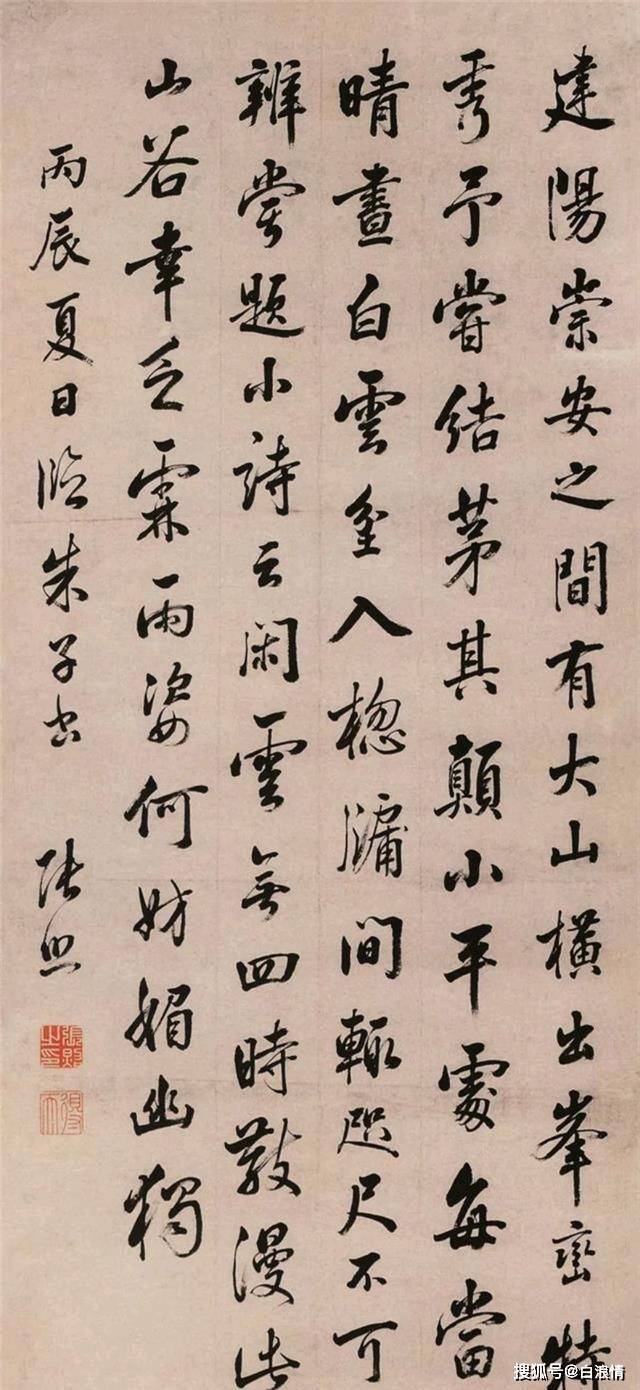 建陽崇安之間有大山橫出峯巒特
秀予嘗結茅其顛小平處每當
晴晝白雲坌入牕牖間輒咫尺不可
辨嘗題小詩云閑雲無四時散漫此
山谷幸乏霖雨姿何妨媚幽獨
丙辰夏日臨朱子書
張照
張照之印
得天
搜狐号@白浪情